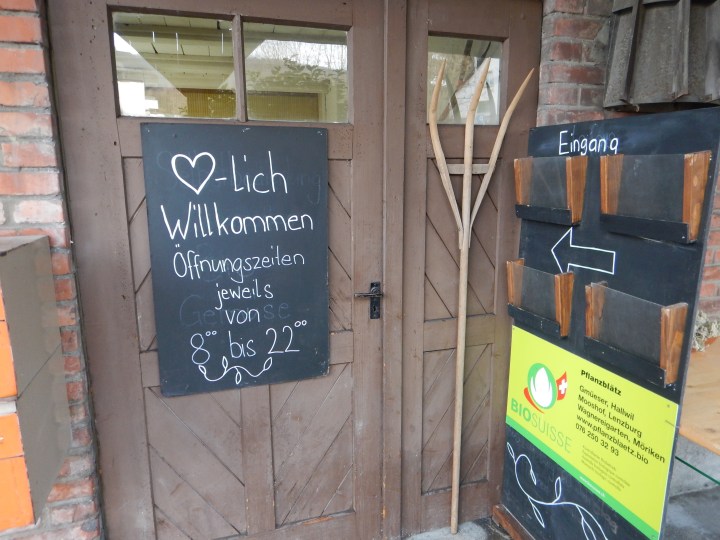 ♡-lich
Willkommen
Öffnungszeiten
jeweils
von
8°° bis 22°°
Eingang
←
BIOSUISSE
Pflanzblätz
Gmüeser, Hallwil
Mooshof, Lenzburg
Wagnereigarten, Möriken
www.pflanzblaetz.bio
076 250 32 93